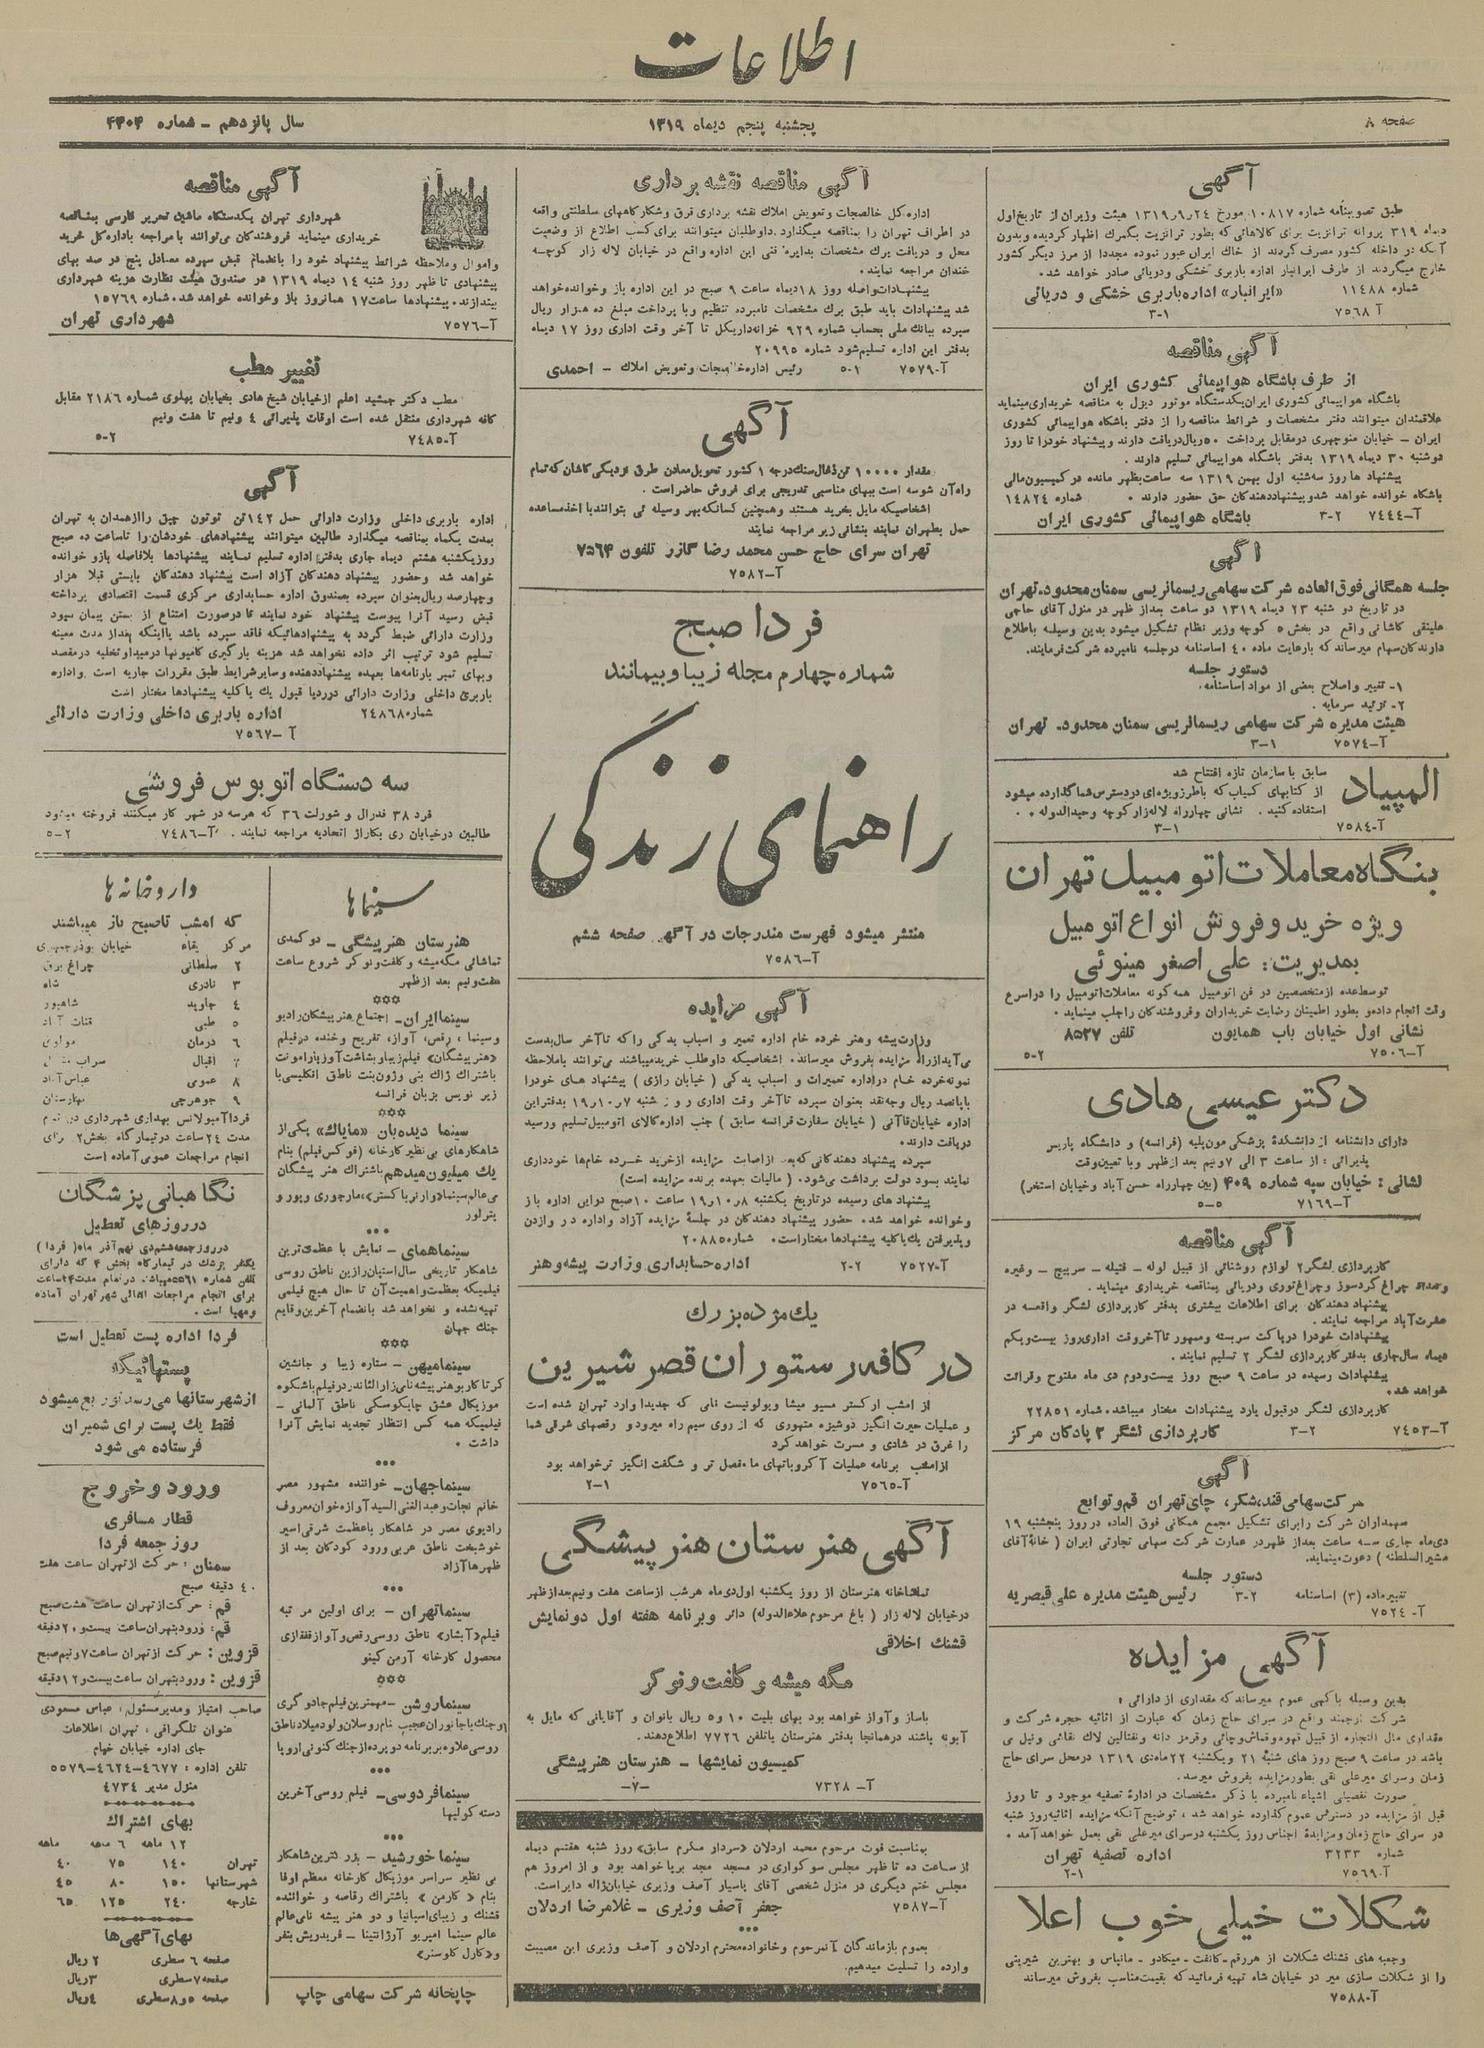 اطلاعات
صفحه ۸
پنجشنبه پنجم دیماه ۱۳۱۹
سال پانزدهم ـ شماره ۴۴۰۴
آگهی
طبق تصویبنامه شماره ۱۰۸۱۷ مورخ ۲۴ر۹ر۱۳۱۹ هیئت وزیران از تاریخ اول
دیماه ۳۱۹ پروانه ترانزیت برای کالاهائی که بطور ترانزیت بگمرک اظهار گردیده و بدون
آنکه در داخله کشور مصرف کردند از خاک ایران عبور نموده مجددا از مرز دیگر کشور
خارج میگردند از طرف ایرانبار اداره باربری خشکی و دریائی صادر خواهد شد.
شماره ۱۱۴۸۸ «ایرانبار» اداره باربری خشکی و دریائی
آ ۷۵۶۸ ۳-۱
آگهی مناقصه
از طرف باشگاه هواپیمائی کشوری ایران
باشگاه هواپیمائی کشوری ایران یکدستگاه موتور دیزل به مناقصه خریداری مینماید
علاقمندان میتوانند دفتر مشخصات و شرائط مناقصه را از دفتر باشگاه هواپیمائی کشوری
ایران ـ خیابان منوچهری در مقابل پرداخت ۵۰ ریال دریافت دارند و پیشنهاد خود را تا روز
دوشنبه ۳۰ دیماه ۱۳۱۹ بدفتر باشگاه هواپیمائی تسلیم دارند.
پیشنهاد ها روز سه شنبه اول بهمن ۱۳۱۹ سه ساعت بظهر مانده در کمیسیون مالی
باشگاه خوانده خواهد شد و پیشنهاد دهندگان حق حضور دارند. شماره ۱۴۸۲۴
آ-۷۴۴۴ ۳-۲ باشگاه هواپیمائی کشوری ایران
آگهی
جلسه همگانی فوق العاده شرکت سهامی ریسمانریسی سمنان محدود ـ تهران
در تاریخ دو شنبه ۲۳ دیماه ۱۳۱۹ دو ساعت بعد از ظهر در منزل آقای حاجی
علینقی کاشانی واقع در بخش ۵ کوچه وزیر نظام تشکیل میشود بدین وسیله باطلاع
دارندگان سهام میرساند که بارعایت ماده ۴۰ اساسنامه در جلسه نامبرده شرکت فرمایند.
دستور جلسه
۱ـ تغییر و اصلاح بعضی از مواد اساسنامه.
۲ـ تزئید سرمایه.
هیئت مدیره شرکت سهامی ریسمانریسی سمنان محدود ـ تهران
آ-۷۵۷۴ ۳-۱
المپیاد
سابق با سازمان تازه افتتاح شد
از کتابهای کمیاب که باطرز ویژه ای در دسترس شما گذارده میشود
استفاده کنید. نشانی چهارراه لاله زار کوچه وحید الدوله.
آ-۷۵۸۴ ۳-۱
بنگاه معاملات اتومبیل تهران
ویژه خرید و فروش انواع اتومبیل
بمدیریت: علی اصغر مینوئی
توسط عده از متخصصین در فن اتومبیل همه گونه معاملات اتومبیل را در اسرع
وقت انجام داده و بطور اطمینان رضایت خریداران و فروشندگان را جلب مینماید.
نشانی اول خیابان باب همایون تلفن ۸۵۲۷
آ-۷۵۰۶ ۵-۲
دکتر عیسی هادی
دارای دانشنامه از دانشکدهٔ پزشکی مون پلیه (فرانسه) و دانشگاه پاریس
پذیرائی: از ساعت ۳ الی ۷ و نیم بعد از ظهر و با تعیین وقت
نشانی: خیابان سپه شماره ۴۰۹ (بین چهارراه حسن آباد و خیابان استخر)
آ-۷۱۶۹ ۵-۵
آگهی مناقصه
کارپردازی لشگر ۲ لوازم روشنائی از قبیل لوله ـ فتیله ـ سرپیچ ـ وغیره
چراغ گردسوز و چراغ توری و دریائی بمناقصه خریداری مینماید.
پیشنهاد دهندگان برای اطلاعات بیشتری بدفتر کارپردازی لشگر واقعه در
عشرت آباد مراجعه نمایند.
پیشنهادات خود را در پاکت سربسته و ممهور تا آخر وقت اداری روز بیست و یکم
دیماه سال جاری بدفتر کارپردازی لشگر ۲ تسلیم نمایند.
پیشنهادات رسیده در ساعت ۹ صبح روز بیست و دوم دی ماه مفتوح و قرائت
خواهد شد.
کارپردازی لشگر در قبول یا رد پیشنهادات مختار میباشد. شماره ۲۲۸۵۱
آ-۷۴۵۳ ۳-۲ کارپردازی لشگر ۲ پادگان مرکز
آگهی
شرکت سهامی قند، شکر، چای تهران قم و توابع
سهمداران شرکت را برای تشکیل مجمع همگانی فوق العاده در روز پنجشنبه ۱۹
دی ماه جاری سه ساعت بعد از ظهر در عمارت شرکت سهامی تجارتی ایران (خانهٔ آقای
مشیر السلطنه) دعوت مینماید.
دستور جلسه
تغییر ماده (۳) اساسنامه ۳-۲ رئیس هیئت مدیره علی قیصریه
آ- ۷۵۲۴
آگهی مزایده
بدین وسیله باگهی عموم میرساند که مقداری از دارائی:
شرکت ارجمند واقع در سرای حاج زمان که عبارت از اثاثیه حجره شرکت و
مقداری مال التجاره از قبیل قهوه و قماش و چائی و قرمز دانه و نفتالین لاک نقاشی و نیل می
باشد در ساعت ۹ صبح روز های شنبه ۲۱ و یکشنبه ۲۲ ماه دی ۱۳۱۹ در محل سرای حاج
زمان و سرای میر علی نقی بطور مزایده بفروش میرسد.
صورت تفصیلی اشیاء نامبرده با ذکر مشخصات در ادارهٔ تصفیه موجود و تا روز
قبل از مزایده در دسترس عموم گذارده خواهد شد، توضیح آنکه مزایده اثاثیه روز شنبه
در سرای حاج زمان و مزایدهٔ اجناس روز یکشنبه در سرای میر علی نقی بعمل خواهد آمد.
شماره ۳۲۳۳ اداره تصفیه تهران
آ-۷۵۶۹ ۲-۱
شکلات خیلی خوب اعلا
وجعبه های قشنگ شکلات از هر رقم ـ کانفت ـ میکادو ـ مانپاس و بهترین شیرینی
را از شکلات سازی میر در خیابان شاه تهیه فرمائید که بقیمت مناسب بفروش میرساند
آ-۷۵۸۸
آگهی مناقصه نقشه برداری
اداره کل خالصجات و تعویض املاک نقشه برداری قرق و شکارگاههای سلطنتی واقعه
در اطراف تهران را بمناقصه میگذارد. داوطلبان میتوانند برای کسب اطلاع از وضعیت
محل و دریافت برگ مشخصات بدایره فنی این اداره واقع در خیابان لاله زار کوچه
خندان مراجعه نمایند.
پیشنهادات واصله روز ۱۸ دیماه ساعت ۹ صبح در این اداره باز و خوانده خواهد
شد پیشنهادات باید طبق برگ مشخصات نامبرده تنظیم و با پرداخت مبلغ ده هزار ریال
سپرده ببانک ملی بحساب شماره ۹۲۹ خزانه داریکل تا آخر وقت اداری روز ۱۷ دیماه
بدفتر این اداره تسلیم شود شماره ۲۰۹۹۵
آ-۷۵۷۹ ۵-۱ رئیس اداره خالصجات و تعویض املاک ـ احمدی
آگهی
مقدار ۱۰۰۰۰ تن ذغال سنگ درجه ۱ کشور تحویل معادن طرق نزدیکی کاشان که تمام
راه آن شوسه است ببهای مناسبی تدریجی برای فروش حاضر است.
اشخاصیکه مایل بخرید هستند و همچنین کسانیکه بهر وسیله ئی بتوانند با اخذ مساعده
حمل بطهران نمایند بنشانی زیر مراجعه نمایند
تهران سرای حاج حسن محمد رضا گازر تلفون ۷۵۶۴
آ-۷۵۸۲
فردا صبح
شماره چهارم مجله زیبا و بیمانند
راهنمای زندگی
منتشر میشود فهرست مندرجات در آگهی صفحه ششم
آ-۷۵۸۶
آگهی مزایده
وزارت پیشه و هنر خرده خام اداره تعمیر و اسباب یدکی را که تا آخر سال بدست
می آید از راه مزایده بفروش میرساند. اشخاصیکه داوطلب خرید میباشند می توانند با ملاحظه
نمونه خرده خام در اداره تعمیرات و اسباب یدکی (خیابان رازی) پیشنهاد های خود را
با پانصد ریال وجه نقد بعنوان سپرده تا آخر وقت اداری روز شنبه ۷ر۱۰ر۱۹ بدفتر این
اداره خیابان قاآنی (خیابان سفارت فرانسه سابق) جنب اداره کالای اتومبیل تسلیم و رسید
دریافت دارند.
سپرده پیشنهاد دهندگانی که بعد از اصابت مزایده از خرید خرده خام ها خودداری
نمایند بسود دولت برداشت می شود. (مالیات بعهده برنده مزایده است)
پیشنهاد های رسیده در تاریخ یکشنبه ۸ر۱۰ر۱۹ ساعت ۱۰ صبح در این اداره باز
و خوانده خواهد شد. حضور پیشنهاد دهندگان در جلسهٔ مزایده آزاد و اداره در وازدن
و پذیرفتن یک یا کلیه پیشنهادها مختار است. شماره ۲۰۸۸۵
آ-۷۵۲۷ ۲-۲ اداره حسابداری وزارت پیشه و هنر
یک مژده بزرگ
در کافه رستوران قصر شیرین
از امشب ارکستر مسیو میشا ویولونیست نامی که جدیدا وارد تهران شده است
و عملیات حیرت انگیز دوشیزه متهوری که از روی سیم راه میرود و رقصهای شرقی شما
را غرق در شادی و مسرت خواهد کرد
از امشب برنامه عملیات آکروباتهای ما مفصل تر و شگفت انگیز تر خواهد بود
آ-۷۵۶۵ ۲-۱
آگهی هنرستان هنرپیشگی
تماشاخانه هنرستان از روز یکشنبه اول دی ماه هر شب از ساعت هفت و نیم بعد از ظهر
در خیابان لاله زار (باغ مرحوم علاء الدوله) دائر و برنامه هفته اول دو نمایش
قشنگ اخلاقی
مگه میشه و کلفت و نوکر
باساز و آواز خواهد بود بهای بلیت ۱۰ و ۵ ریال بانوان و آقایانی که مایل به
آبونه باشند در همانجا بدفتر هنرستان یا تلفن ۷۷۲۶ اطلاع دهند.
کمیسیون نمایشها ـ هنرستان هنرپیشگی
آ- ۷۳۲۸ -۷-
بمناسبت فوت مرحوم محمد اردلان «سردار مکرم سابق» روز شنبه هفتم دیماه
از ساعت ده تا ظهر مجلس سوگواری در مسجد مجد برپا خواهد بود و از امروز هم
مجلس ختم دیگری در منزل شخصی آقای پاسیار آصف وزیری خیابان ژاله دایر است.
آ-۷۵۸۷ جعفر آصف وزیری ـ غلامرضا اردلان
بعموم بازماندگان آنمرحوم و خانواده محترم اردلان و آصف وزیری این مصیبت
وارده را تسلیت میدهیم.
آگهی مناقصه
شهرداری تهران یکدستگاه ماشین تحریر فارسی بمناقصه
خریداری مینماید فروشندگان می توانند با مراجعه باداره کل خرید
و اموال و ملاحظه شرائط پیشنهاد خود را بانضمام قبض سپرده معادل پنج در صد بهای
پیشنهادی تا ظهر روز شنبه ۱۴ دیماه ۱۳۱۹ در صندوق هیئت نظارت هزینه شهرداری
بیندازند. پیشنهادها ساعت ۱۷ همانروز باز و خوانده خواهد شد. شماره ۱۵۷۶۹
آ-۷۵۷۶ شهرداری تهران
تغییر مطب
مطب دکتر جمشید اعلم از خیابان شیخ هادی بخیابان پهلوی شماره ۲۱۸۶ مقابل
کافه شهرداری منتقل شده است اوقات پذیرائی ۴ ونیم تا هفت ونیم
آ-۷۴۸۵ ۵-۲
آگهی
اداره باربری داخلی وزارت دارائی حمل ۱۴۲ تن توتون چپق را از همدان به تهران
بمدت یکماه بمناقصه میگذارد طالبین میتوانند پیشنهادهای خودشان را تا ساعت ده صبح
روز یکشنبه هشتم دیماه جاری بدفتر اداره تسلیم نمایند پیشنهادها بلافاصله باز و خوانده
خواهد شد و حضور پیشنهاد دهندگان آزاد است پیشنهاد دهندگان بایستی قبلا هزار
و چهارصد ریال بعنوان سپرده بصندوق اداره حسابداری مرکزی قسمت اقتصادی پرداخته
قبض رسید آنرا پیوست پیشنهاد خود نمایند تا در صورت امتناع از بستن پیمان بسود
وزارت دارائی ضبط گردد به پیشنهادهائیکه فاقد سپرده باشد یا اینکه بعد از مدت معینه
تسلیم شود ترتیب اثر داده نخواهد شد هزینه بارگیری کامیونها در مبدا و تخلیه در مقصد
و بهای تمبر بارنامه ها بعهده پیشنهاد دهنده و سایر شرایط طبق مقررات جاریه است. و اداره
باربری داخلی وزارت دارائی در رد یا قبول یک یا کلیه پیشنهادها مختار است
شماره ۲۴۸۶۸ اداره باربری داخلی وزارت دارائی
آ-۷۵۶۷
سه دستگاه اتوبوس فروشی
فرد ۳۸ فدرال و شورلت ۳۶ که هر سه در شهر کار میکنند فروخته میشود
طالبین در خیابان ری بگاراژ اتحادیه مراجعه نمایند. آ-۷۴۸۶ ۵-۲
سینماها
هنرستان هنرپیشگی ـ دو کمدی
تماشائی مگه میشه و کلفت و نوکر شروع ساعت
هفت و نیم بعد از ظهر
سینما ایران ـ اجتماع هنرپیشگان رادیو
و سینما، رقص، آواز، تفریح و خنده در فیلم
«هنرپیشگان» فیلم زیبا و بشاشت آور پارامونت
باشتراک ژاک بنی و ژون بنت ناطق انگلیسی با
زیر نویس بزبان فرانسه
سینما دیده بان «مایاک» یکی از
شاهکارهای بی نظیر کارخانه (فوکس فیلم) بنام
یک میلیون میدهم باشتراک هنر پیشگان
بی عالم سینما «وارنر باکستر» مارجوری ویور و
پتر لور
سینما همای ـ نمایش با عظمت ترین
شاهکار تاریخی سال استپان رازین ناطق روسی
فیلمیکه بعظمت و اهمیت آن تا حال هیچ فیلمی
تهیه نشده و نخواهد شد بانضمام آخرین وقایم
جنگ جهان
سینما میهن ـ ستاره زیبا و جانشین
گرتا گاربو هنرپیشه نامی زارالئاندر در فیلم باشکوه
موزیکال عشق چایکوسکی ناطق آلمانی ـ
فیلمیکه همه کس انتظار تجدید نمایش آنرا
داشت.
سینما جهان ـ خواننده مشهور مصر
خانم نجات و عبد الغنی السید آوازه خوان معروف
رادیوی مصر در شاهکار باعظمت شرقی اسیر
خوشبخت ناطق عربی ورود کودکان بعد از
ظهرها آزاد
سینما تهران ـ برای اولین مرتبه
فیلم «آبشار» ناطق روسی رقص و آواز قفقازی
محصول کارخانه آرمن کینو
سینما روشن ـ مهمترین فیلم جادوگری
و جنگ باجانوران عجیب بنام روسلان و لودمیلا ناطق
روسی علاوه بر برنامه دو پرده از جنگ کنونی اروپا
سینما فردوسی ـ فیلم روسی آخرین
دسته کولیها
سینما خورشید ـ بزرگترین شاهکار
بی نظیر سراسر موزیکال کارخانه معظم اوفا
بنام «کارمن» باشتراک رقاصه و خواننده
قشنگ و زیبای اسپانیا و دو هنر پیشه نامی عالم
عالم سینما امپریو آرژانتینا ـ فریدریش بنفر
و «کارل کلوسنر»
چاپخانه شرکت سهامی چاپ
داروخانه ها
که امشب تا صبح باز میباشند
مرکز بقاء خیابان بوذرجمهری
۲ سلطانی چراغ برق
۳ نادری شاه
۴ جاوید شاهپور
۵ طبی قنات آباد
۶ درمان مولوی
۷ اقبال سراب
۸ عمومی عباس آباد
۹ جوهرچی بهارستان
فردا آمبولانس بهداری شهرداری در تمام
مدت ۲۴ ساعت در تیمارگاه بخش ۲ برای
انجام مراجعات عمومی آماده است
نگاهبانی پزشگان
در روزهای تعطیل
در روز جمعه ششم دی نهم آذر ماه (فردا)
یکنفر پزشک در تیمارگاه بخش ۴ که دارای
تلفن شماره ۵۵۶۱ میباشد در تمام مدت ۲۴ ساعت
برای انجام مراجعات اهالی شهر تهران آماده
و مهیا است.
فردا اداره پست تعطیل است
پستهائیکه
از شهرستانها می رسد توزیع میشود
فقط یک پست برای شمیران
فرستاده می شود
ورود و خروج
قطار مسافری
روز جمعه فردا
سمنان: حرکت از تهران ساعت هفت
۴۰ دقیقه صبح
قم: حرکت از تهران ساعت هشت صبح
قم: ورود بتهران ساعت بیست و ۲۰ دقیقه
قزوین: حرکت از تهران ساعت ۷ و نیم صبح
قزوین: ورود بتهران ساعت بیست و ۱۲ دقیقه
صاحب امتیاز و مدیر مسئول: عباس مسعودی
عنوان تلگرافی: تهران اطلاعات
جای اداره خیابان خیام
تلفن اداره: ۴۶۷۷-۴۶۲۴-۵۵۷۹
منزل مدیر ۴۷۳۴
بهای اشتراک
۱۲ ماهه ۶ ماهه ماهه
تهران ۱۴۰ ۷۵ ۴۰
شهرستانها ۱۵۰ ۸۰ ۴۵
خارجه ۲۴۰ ۱۲۵ ۶۵
بهای آگهی ها
صفحه ۶ سطری ۲ ریال
صفحه ۷ سطری ۳ ریال
صفحه ۵ و ۸ سطری ۴ ریال